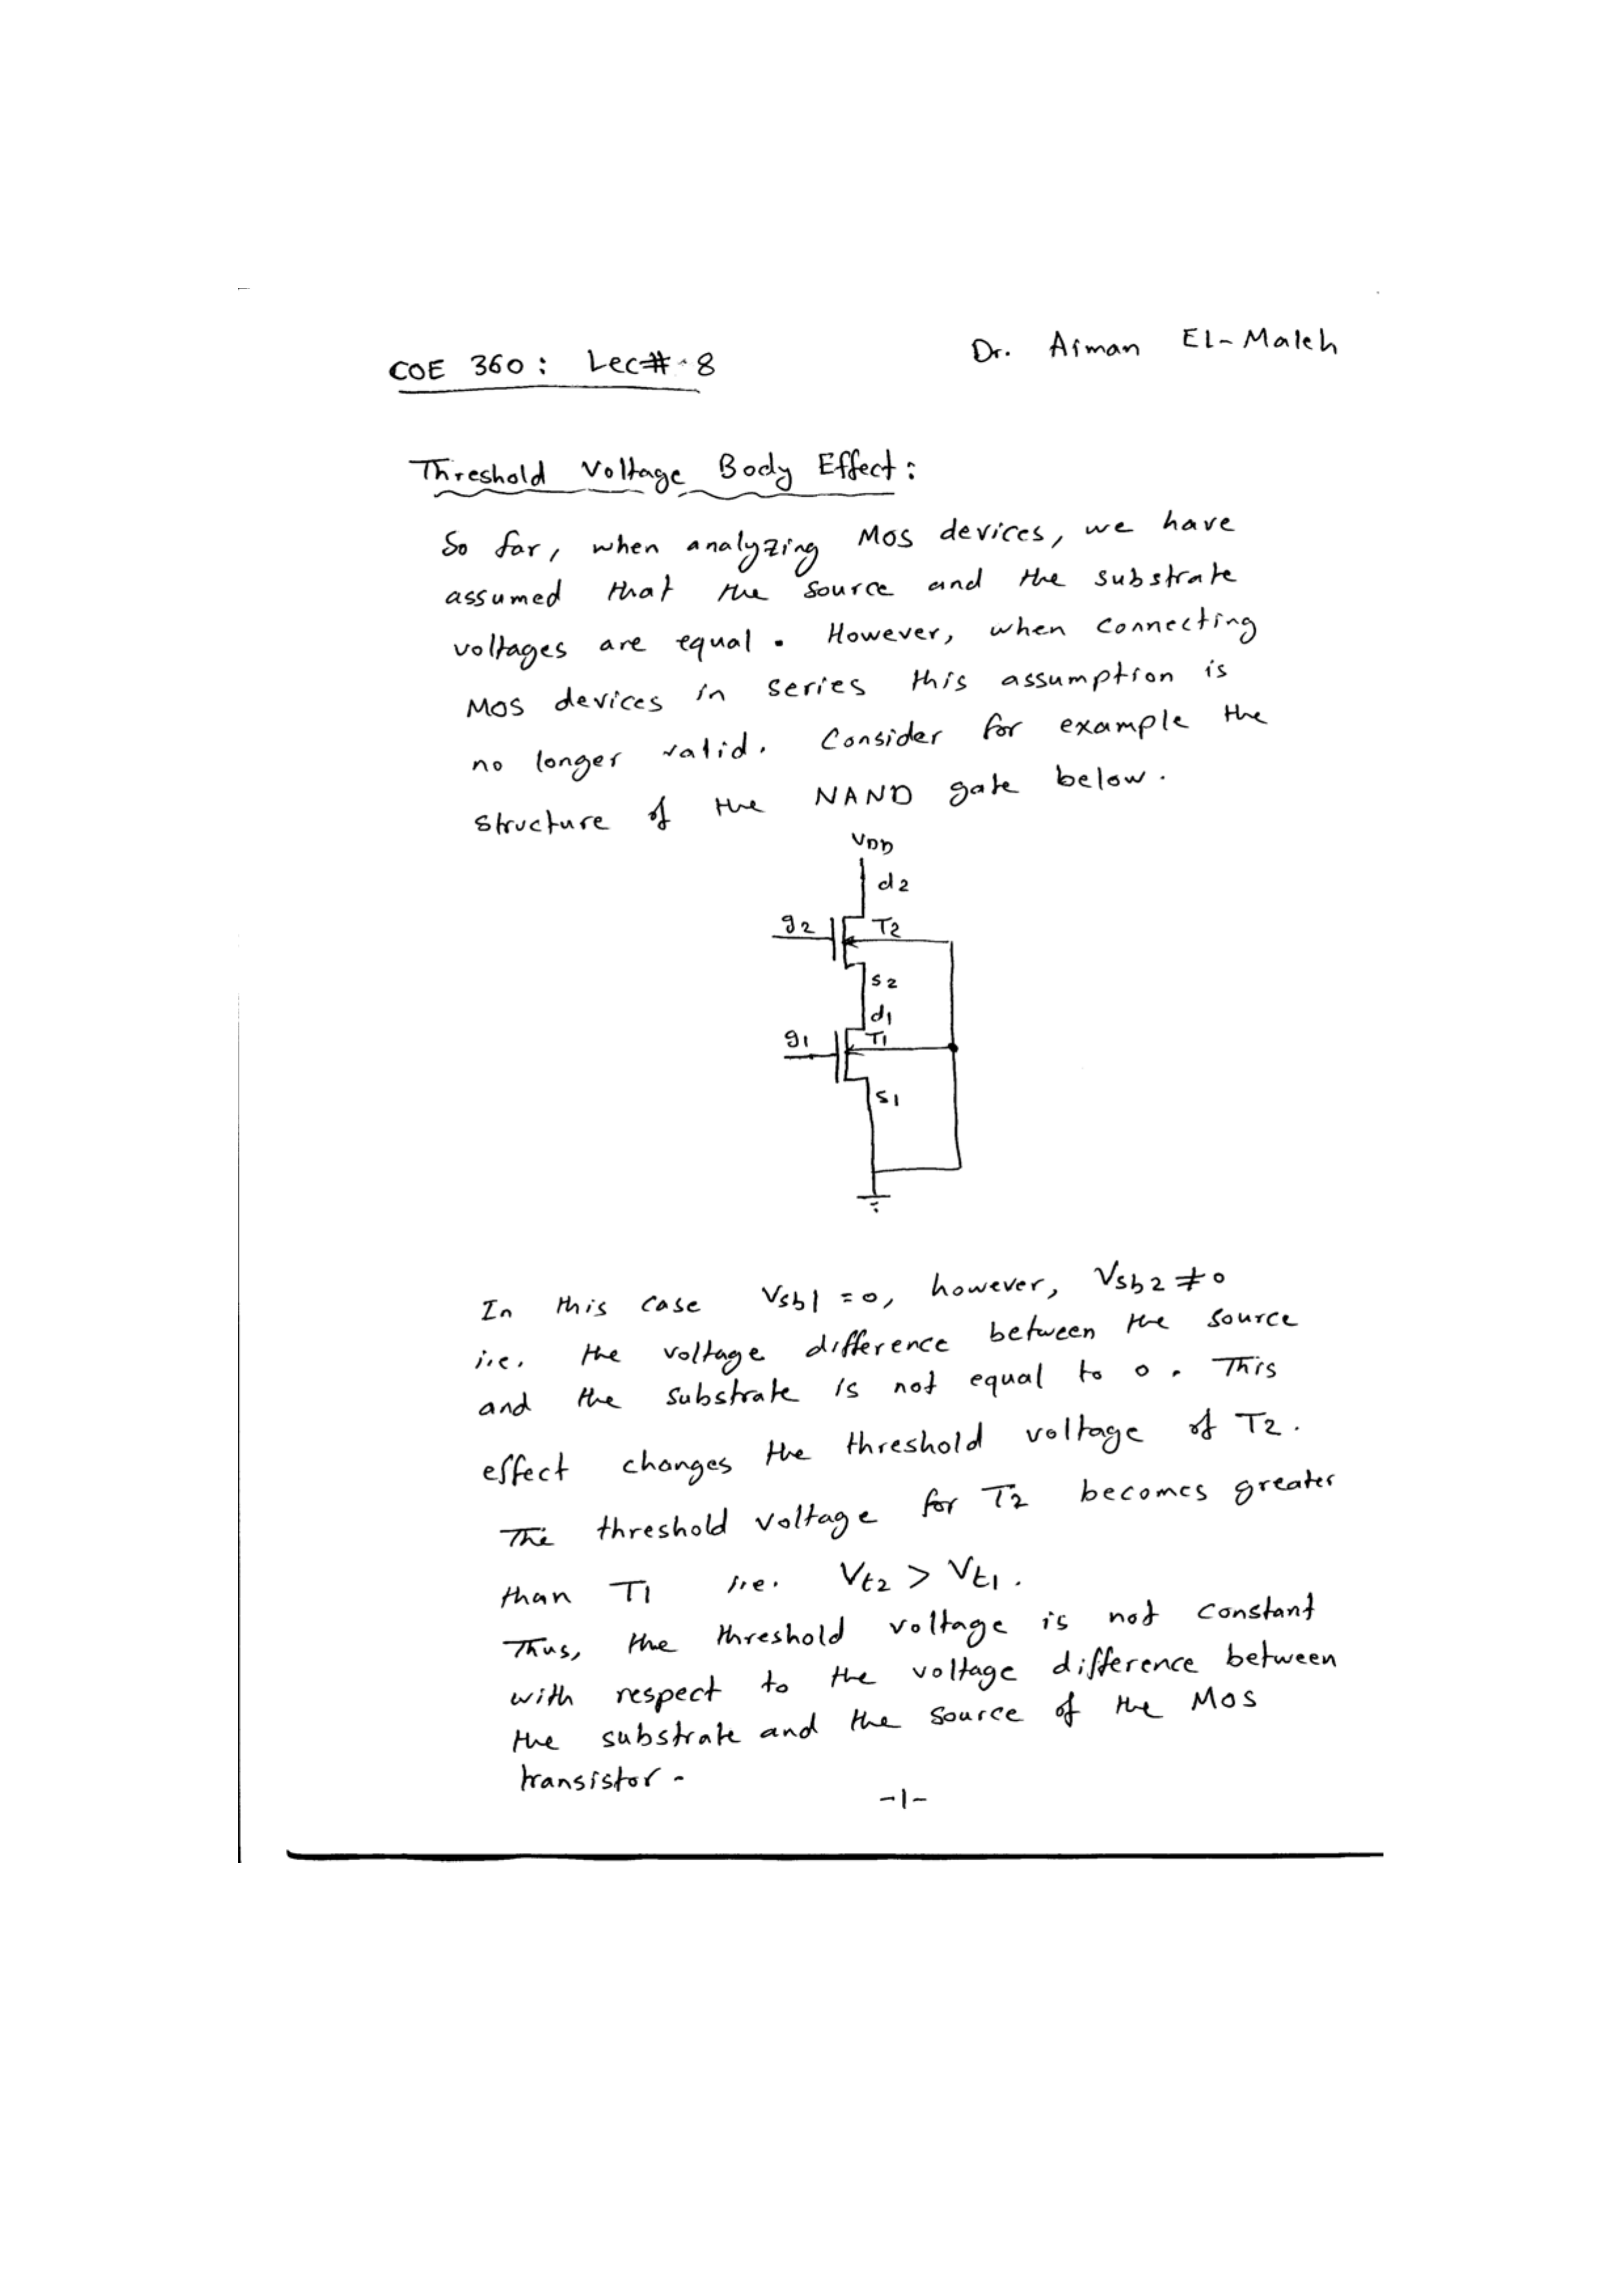 COE 360: Lec# 8
Dr. Aiman El-Maleh
Threshold Voltage Body Effect:
So far, when analyzing MOS devices, we have
assumed that the source and the substrate
voltages are equal. However, when connecting
MOS devices in series this assumption is
no longer valid. Consider for example the
structure of the NAND gate below.
VDD
d2
g2
T2
s2
d1
g1
T1
s1
In this case Vsb1 = 0, however, Vsb2 ≠ 0
i.e. the voltage difference between the source
and the substrate is not equal to 0. This
effect changes the threshold voltage of T2.
The threshold voltage for T2 becomes greater
than T1 i.e. Vt2 > Vt1.
Thus, the threshold voltage is not constant
with respect to the voltage difference between
the substrate and the source of the MOS
transistor.
-1-